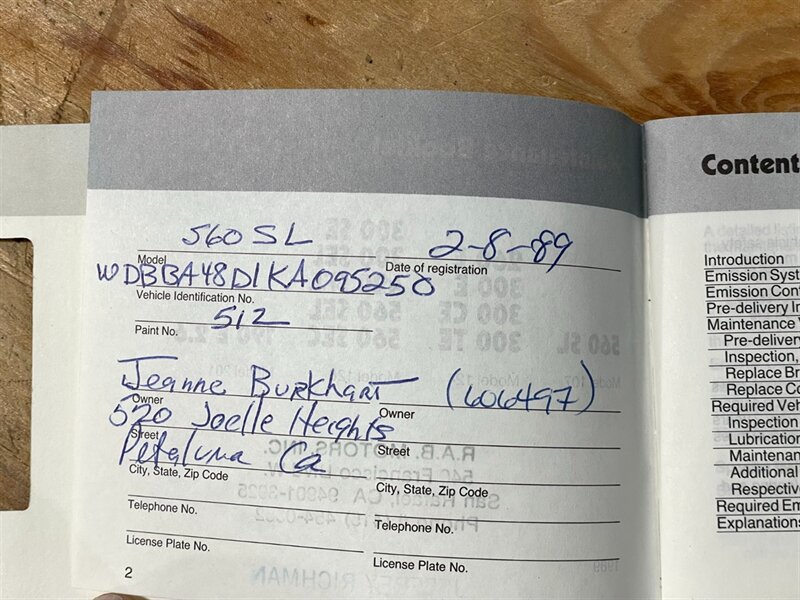 560 SL 2-8-89
Model Date of registration
WDBBA48D1KA095250
Vehicle Identification No.
512
Paint No.
Jeanne Burkhart (606497)
Owner Owner
520 Joelle Heights
Street Street
Petaluma Ca
City, State, Zip Code City, State, Zip Code
Telephone No. Telephone No.
License Plate No. License Plate No.
2
Content
Introduction
Emission Syst
Emission Cont
Pre-delivery In
Maintenance
Pre-delivery
Inspection,
Replace Br
Replace Co
Required Veh
Inspection
Lubrication
Maintenan
Additional
Respectiv
Required Em
Explanations